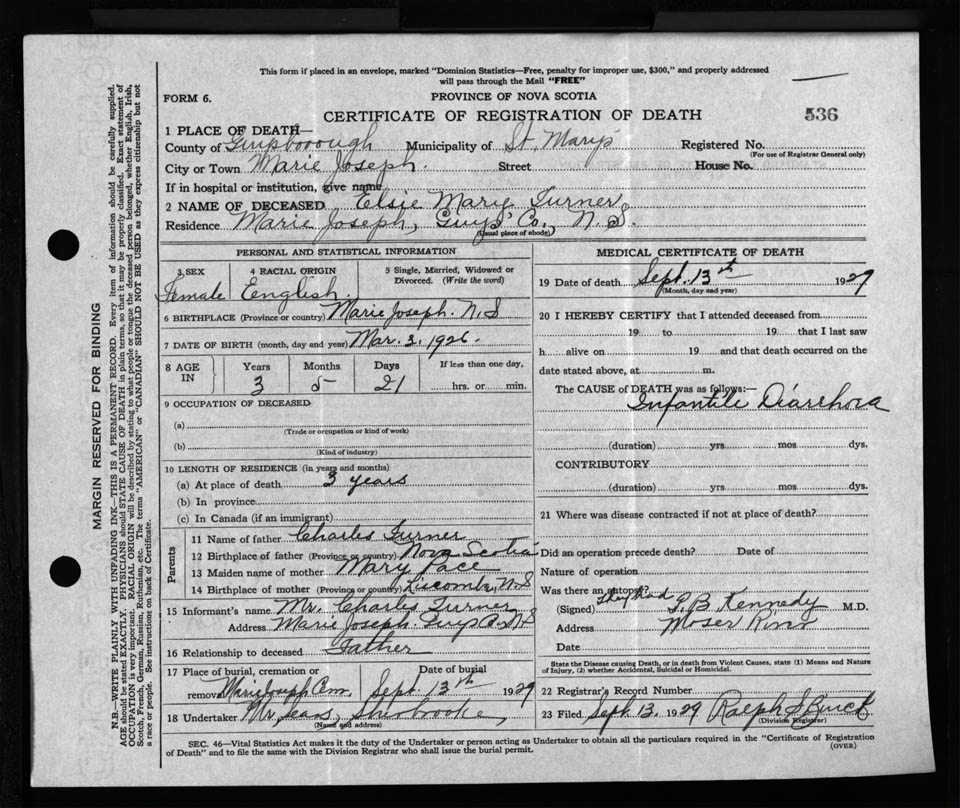 This form if placed in an envelope, marked "Dominion Statistics—Free, penalty for improper use, $300," and properly addressed
will pass through the Mail "FREE"
FORM 6.
PROVINCE OF NOVA SCOTIA
CERTIFICATE OF REGISTRATION OF DEATH
536
1 PLACE OF DEATH—
County of Guysborough Municipality of St. Mary's Registered No.
(For use of Registrar General only)
City or Town Marie Joseph. Street House No.
If in hospital or institution, give name
2 NAME OF DECEASED Elsie Mary Turner
Residence Marie Joseph, Guys' Co., N. S.
(Usual place of abode)
PERSONAL AND STATISTICAL INFORMATION
3 SEX 4 RACIAL ORIGIN 5 Single, Married, Widowed or
Divorced. (Write the word)
Female English.
6 BIRTHPLACE (Province or country) Marie Joseph. N.S
7 DATE OF BIRTH (month, day and year) Mar. 3, 1926.
8 AGE IN Years Months Days If less than one day,
3 5 21 hrs. or min.
9 OCCUPATION OF DECEASED
(a)
(Trade or occupation or kind of work)
(b)
(Kind of industry)
10 LENGTH OF RESIDENCE (in years and months)
(a) At place of death 3 years
(b) In province
(c) In Canada (if an immigrant)
Parents
11 Name of father Charles Turner
12 Birthplace of father (Province or country) Nova Scotia
13 Maiden name of mother Mary Pace
14 Birthplace of mother (Province or country) Liscomb, N.S
15 Informant's name Mr. Charles Turner
Address Marie Joseph. Guys Co. N.S
16 Relationship to deceased Father
17 Place of burial, cremation or Date of burial
removal Marie Joseph Cem. Sept. 13th 1929
18 Undertaker Sherbrooke,
(Name and address)
MEDICAL CERTIFICATE OF DEATH
19 Date of death Sept. 13th 1929
(Month, day and year)
20 I HEREBY CERTIFY that I attended deceased from
19 to 19 that I last saw
h alive on 19 and that death occurred on the
date stated above, at m.
The CAUSE of DEATH was as follows:—
Infantile Diarrhoea
(duration) yrs mos dys.
CONTRIBUTORY
(duration) yrs mos dys.
21 Where was disease contracted if not at place of death?
Did an operation precede death? Date of
Nature of operation
Was there an autopsy?
(Signed) B Kennedy M.D.
Address Moser River
Date
State the Disease causing Death, or in death from Violent Causes, state (1) Means and Nature
of Injury, (2) whether Accidental, Suicidal or Homicidal.
22 Registrar's Record Number
23 Filed Sept. 13, 1929 Ralph S
(Division Registrar)
SEC. 46—Vital Statistics Act makes it the duty of the Undertaker or person acting as Undertaker to obtain all the particulars required in the "Certificate of Registration
of Death" and to file the same with the Division Registrar who shall issue the burial permit.
(OVER)
MARGIN RESERVED FOR BINDING
N.B.—WRITE PLAINLY WITH UNFADING INK—THIS IS A PERMANENT RECORD. Every item of information should be carefully supplied.
AGE should be stated EXACTLY. PHYSICIANS should STATE CAUSE OF DEATH in plain terms, so that it may be properly classified. Exact statement of
OCCUPATION is very important. RACIAL ORIGIN will be described by stating to what people or tongue the deceased person belonged, whether English, Irish,
Scotch, French, German, Russian, Ruthenian, etc. The terms "AMERICAN" or "CANADIAN" SHOULD NOT BE USED as they express citizenship but not
a race or people. See instructions on back of Certificate.